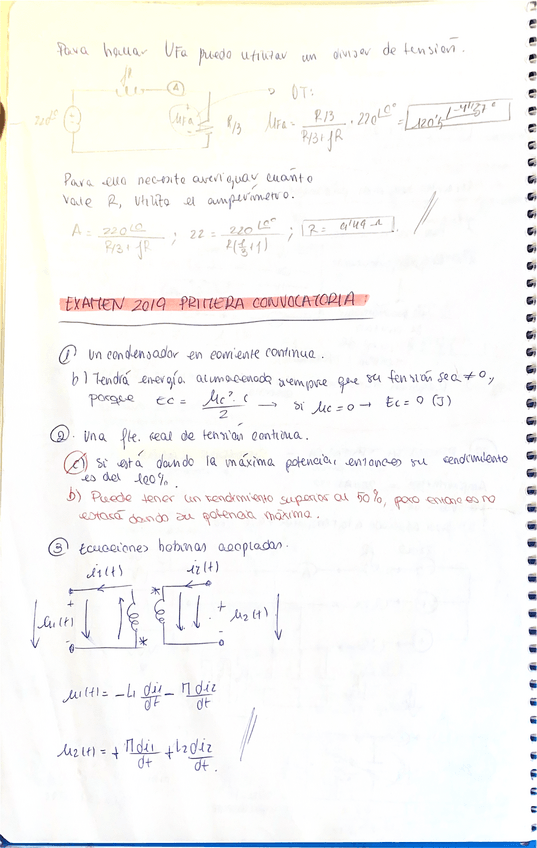 Para hallar UFa puedo utilizar un divisor de tensión.
A
220
UFa
R/3
DT:
UFa = R/3 / R/3 + jR · 220∟0° =
Para ello necesito averiguar cuánto
vale R, utilizo el amperímetro.
A = 220∟0 / R/3 + jR ; 22 = 220∟0° / R(1/3 + j) ; R = 9'49 Ω
EXAMEN 2019 PRIMERA CONVOCATORIA:
① Un condensador en corriente continua.
b) Tendrá energía acumulada siempre que su tensión sea ≠ 0,
porque Ec = Uc² · C / 2 → si Uc = 0 → Ec = 0 (J)
② Una fte. real de tensión continua.
c) Si está dando la máxima potencia, entonces su rendimiento
es del 100%.
b) Puede tener un rendimiento superior al 50%, pero entonces no
estará dando su potencia máxima.
③ Ecuaciones bobinas acopladas.
i1(t) i2(t)
* 
+ +
u1(t) u2(t)
- -
*
u1(t) = -L1 di1/dt - M di2/dt
u2(t) = + M di1/dt + L2 di2/dt.